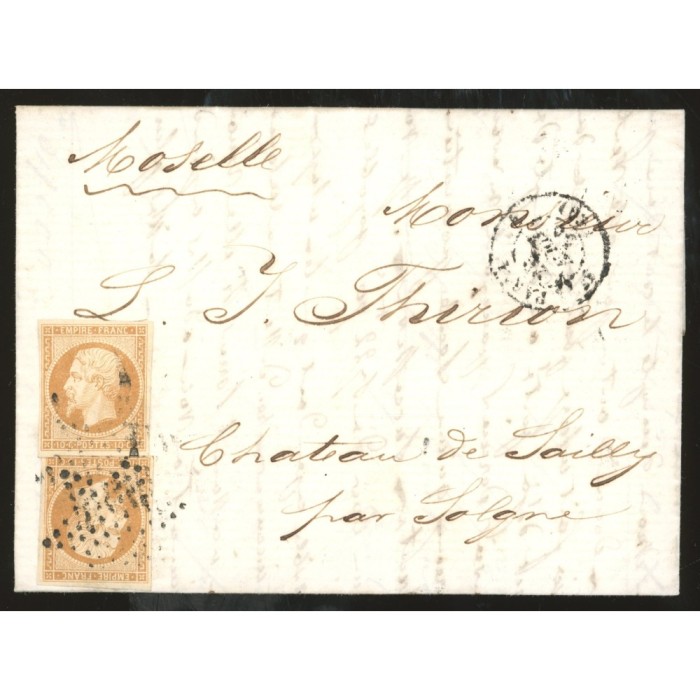 Moselle
Monsieur
L. J. Thirion
EMPIRE FRANC
10 c POSTES 10 c
Chateau de Sailly
par Solgne
EMPIRE FRANC